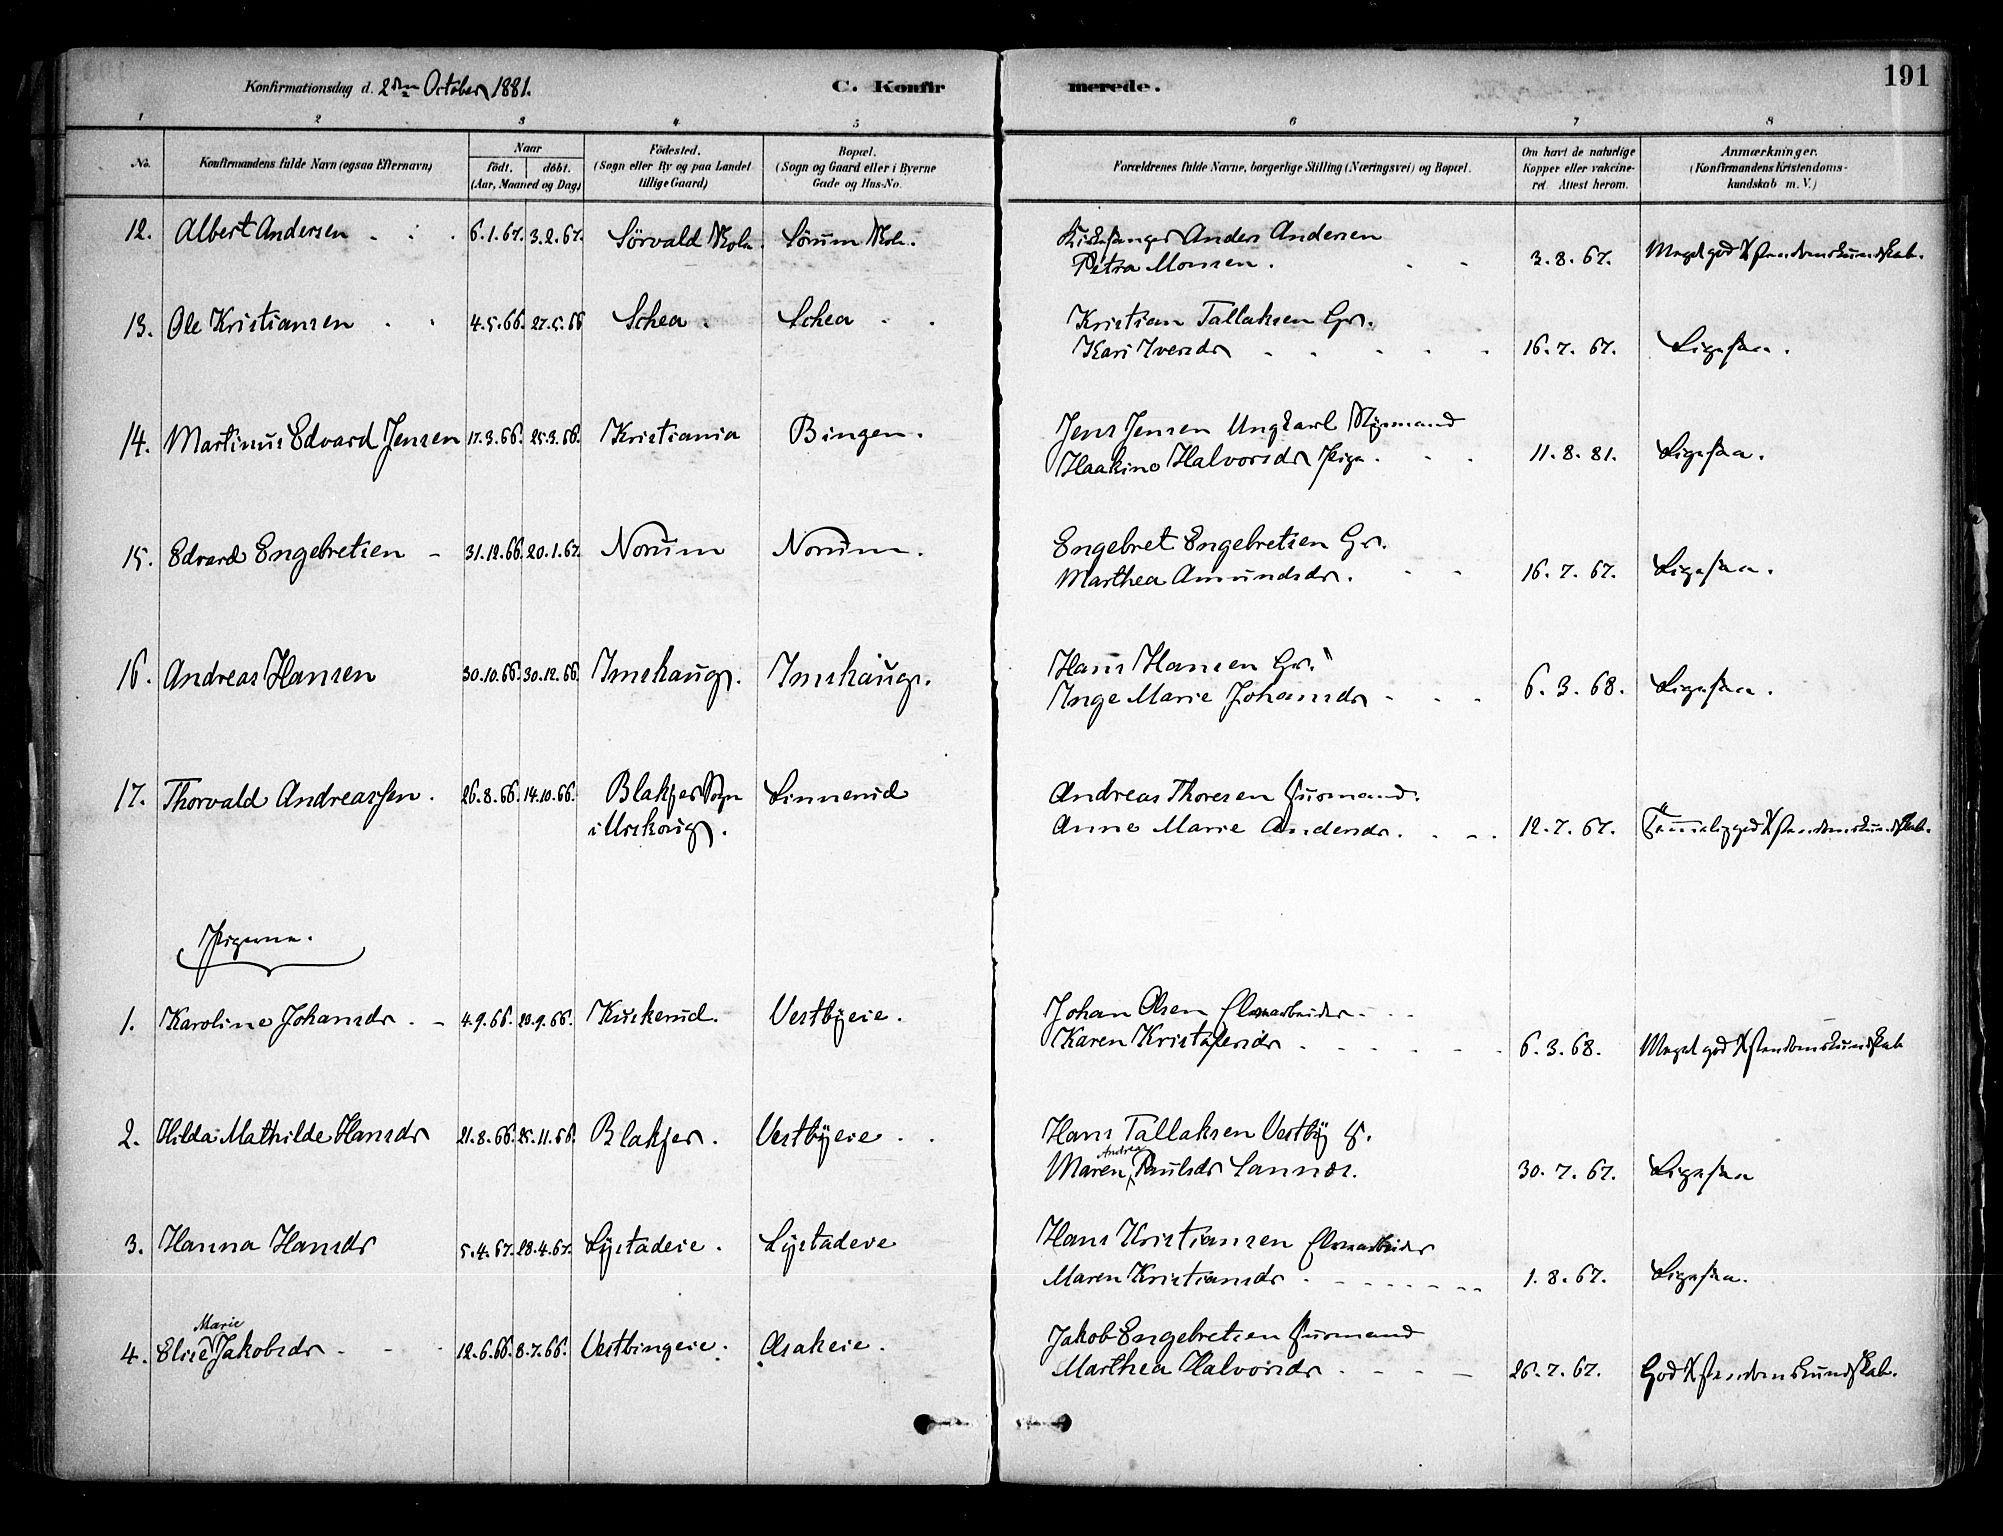 191
Konfirmationsdag d. 2den October 1881. C. Konfirmerede.
1 2 3 4 5 6 7 8
No. Konfirmandens fulde Navn (ogsaa Efternavn) Naar født. døbt. (Aar, Maaned og Dag) Fødested. (Sogn eller By og paa Landet tillige Gaard) Bopæl. (Sogn og Gaard eller i Byerne Gade og Hus-No. Forældrenes fulde Navne, borgerlige Stilling (Næringsvei) og Bopæl. Om havt de naturlige Kopper eller vakcineret. Attest herom. Anmærkninger. (Konfirmandens Kristendomskundskab m. V.)
12. Albert Andersen 6.1.67. 3.2.67. Sörvald Sörum Kirkesanger Anders Andersen
Petra Monsen. 3.8.67. Meget god Xstendomskundskab.
13. Ole Kristiansen 4.5.66. 27.5.66 Schea. Schea Kristian Tallaksen Gr.
Kari Iversdr 16.7.67. Ligesaa.
14. Martinus Edvard Jensen 17.3.66. 25.3.66. Kristiania Bingen. Jens Jensen Ungkarl
Haakine Halvorsdr Pige. 11.8.81. Ligesaa.
15. Edvard Engebretsen 31.12.66. 20.1.67. Norum Norum. Engebret Engebretsen Gr.
Marthea Amundsdr. 16.7.67. Ligesaa.
16. Andreas Hansen 30.10.66. 30.12.66. Imshaug. Imshaug. Hans Hansen Gr.
Inge Marie Johansdr 6.3.68. Ligesaa.
17. Thorvald Andreassen. 26.8.66. 14.10.66. Blakjer Sogn Linnerud Andreas Thoresen Husmand.
i Urskoug. Anne Marie Andersdr. 12.7.67. Temmelig god Xstendomskundskab.
Pigerne.
1. Karoline Johansdr. 4.9.66. 20.9.66. Kuskerud. Vestbyeie. Johan Olsen Elvearbeider
Karen Kristofersdr 6.3.68. Meget god Xstendomskundskab
2. Hilda Mathilde Hansdr 21.8.66. 25.11.66. Blakjer. Vestbyeie. Hans Tallaksen Vestby
Andrea
Maren Paulsdr Sannes. 30.7.67. Ligesaa
3. Hanna Hansdr 5.4.67. 28.4.67. Lystadeie. Lystadeie Hans Kristiansen Elvearbeider
Maren Kristiansdr 1.8.67. Ligesaa.
Marie
4. Elise Jakobsdr 12.6.66. 8.7.66. Vestbingeie. Asakeie. Jakob Engebretsen Husmand
Marthea Halvorsdr 26.7.67. God Xstendomskundskab.